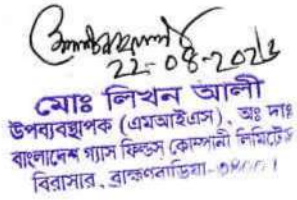 22-08-202
মোঃ লিখন আলী
উপব্যবস্থাপক (এমআইএস), অঃ দাঃ
বাংলাদেশ গ্যাস ফিল্ডস্ কোম্পানী লিমিটেড
বিরাসার, ব্রাহ্মণবাড়িয়া-